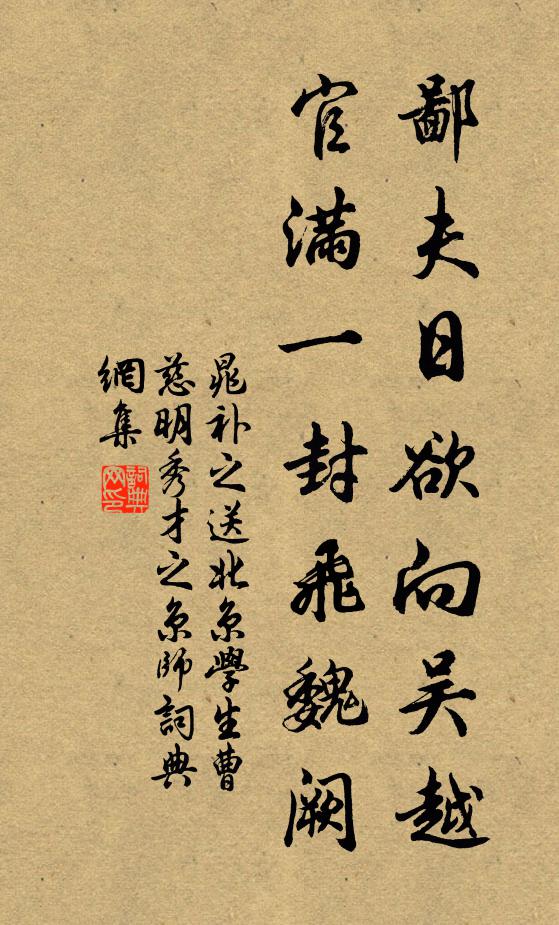 鄙夫日欲向吴越
官滿一封飛魏闕
晁补之送北京學生曹
慈明秀才之京師詞典
網集
詞典
网印